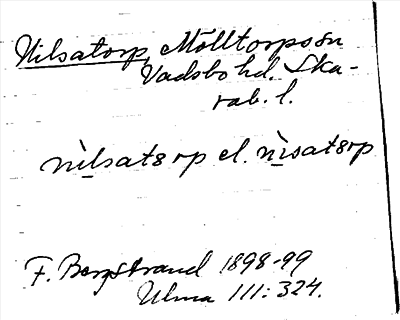 Nilsatorp, Mölltorps sn
Vadsbo hd. Ska-
rab. l.
nìlsatɜrp el. nìsatɜrp
F. Bergstrand 1898-99
Ulma 111:324.